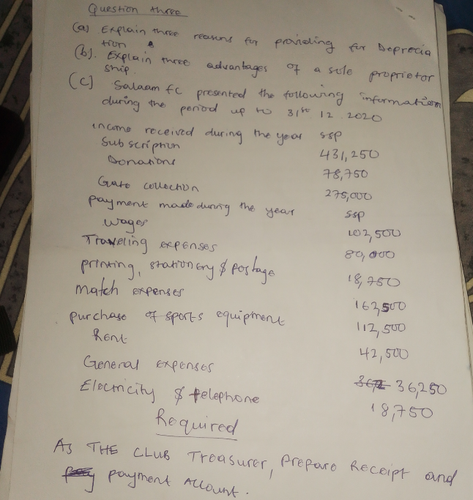 Question three
(a) Explain three reasons for providing for Deprecia
tion
(b). Explain three advantages of a sole proprietor
ship.
(c) Salaam FC presented the following information
during the period up to 31th 12 2020
income received during the year ssp
Subscription 431,250
Donations 78,750
Gate collection 275,000
payment made during the year ssp
Wages 102,500
Traveling expenses 80,000
printing, stationery & postage 18,750
Match expenses 162,500
purchase of sports equipment 112,500
Rent 42,500
General expenses 36,250
Electricity & telephone 18,750
Required
AS THE CLUB Treasurer, prepare Receipt and
payment Account.